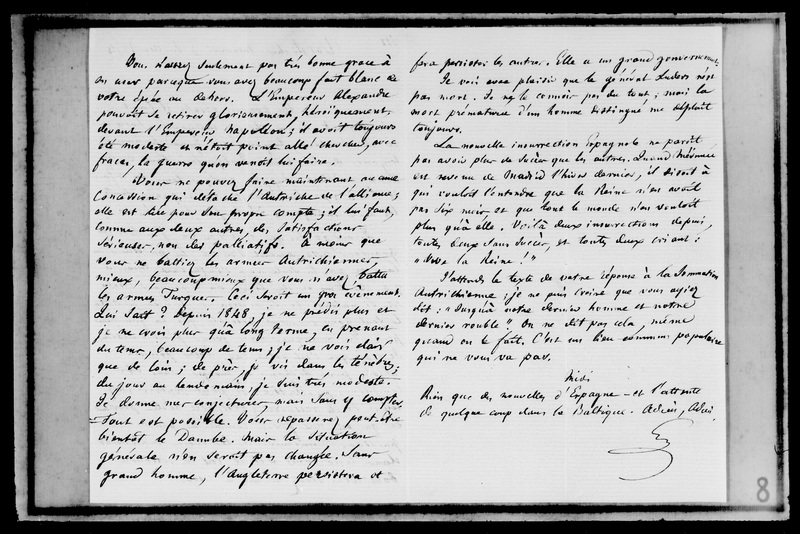 Vous l'avez seulement pas très bonne grace à
en user parceque vous avez beaucoup fait blanc de
votre épée au dehors. L'Empereur Alexandre
pouvoit se retirer glorieusement, héroïquement,
devant l'Empereur Napoléon; il avoit toujours
été modeste et n'étoit point allé chercher, avec
fracas, la guerre qu'on venoit lui faire.
Vous ne pouvez faire maintenant aucune
Concession qui détache l'Autriche de l'alliance;
elle est liée pour son propre compte; il lui faut,
comme aux deux autres, des satisfactions
sérieuses, non des palliatifs. À moins que
vous ne battiez les armées Autrichiennes,
mieux, beaucoup mieux que vous n'avez battu
les armées Turques. Ceci seroit un gros évènement.
Qui sait? Depuis 1848, je ne prédis plus et
je ne crois plus qu'à long terme, en prenant
du tems, beaucoup de tems; je ne vois clair
que de loin; de près, je vis dans les ténèbres;
du jour au lendemain, je suis très modeste.
Je donne mes conjectures, mais sans y compter.
Tout est possible. Vous repasserez peut-être
bientôt le Danube. Mais la situation
générale n'en seroit pas changée. Sans
grand homme, l'Angleterre persistera et
fera persister les autres. Elle a un grand gouvernement.
Je vois avec plaisir que le général Luders n'est
pas mort. Je ne le connois pas du tout; mais la
mort prématurée d'un homme distingué me déplait
toujours.
La nouvelle insurrection Espagnole ne paroît
pas avoir plus de succès que les autres. Quand
est revenu de Madrid l'hiver dernier, il disoit à
qui vouloit l'entendre que la Reine n'en avoit
pas six mois et que tout le monde n'en vouloit
plus qu'à elle. Voilà deux insurrections depuis,
toutes deux sans succès, et toutes deux criant:
"Vive la Reine!"
J'attends le texte de votre réponse à la Sommation
Autrichienne; je ne puis croire que vous ayiez
dit: "Jusqu'à notre dernier homme et notre
dernier rouble". On ne dit pas cela, même
quand on le fait. C'est un lieu commun populaire
qui ne vous va pas.
Midi
Rien que des nouvelles d'Espagne - et l'attente
de quelque coup dans la Baltique. Adieu, Adieu.
8